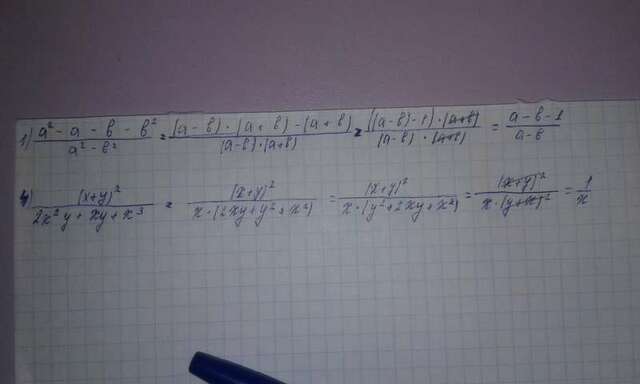 1) (a² - a - b - b²)/(a² - b²) = ((a - b) · (a + b) - (a + b))/((a - b) · (a + b)) = ((a - b) - 1) · (a + b)/((a - b) · (a + b)) = (a - b - 1)/(a - b)
4) (x + y)²/(2x²y + xy + x³) = (x + y)²/(x · (2xy + y² + x²)) = (x + y)²/(x · (y² + 2xy + x²)) = (x + y)²/(x · (y + x)²) = 1/x